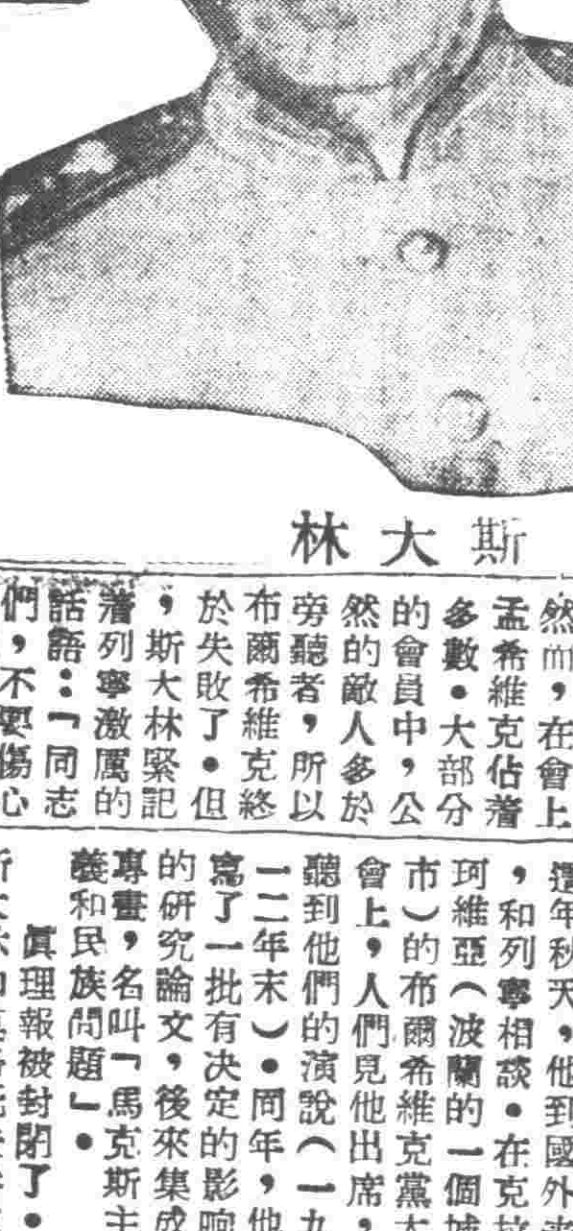 斯大林
然而，在會上
孟希維克佔着
多數．大部分
的會員中，公
然的敵人多於
旁聽者，所以
布爾希維克終
於失敗了．但
，斯大林緊記
着列寧激厲的
話語：「同志
們，不要傷心
這年秋天，他到國外
，和列寧相談．在克
珂維亞（波蘭的一個城
市）的布爾希維克黨大
會上，人們見他出席，
聽到他們的演說（一九
一二年末）．同年，他
寫了一批有决定的影响
的研究論文，後來集成
專畫，名叫「馬克斯主
義和民族問題」．
眞理報被封閉了．